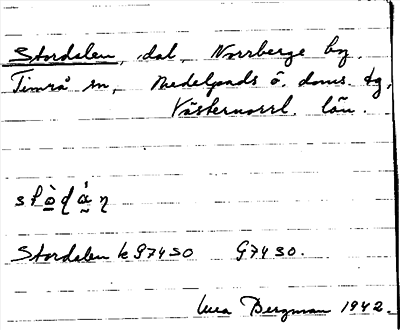 Stordalen, dal, Norrberge by,
Timrå sn, Medelpads ö. doms. tg,
Västernorrl. län.
Stordalen k G74SO G74SO.
Bergman 1942.